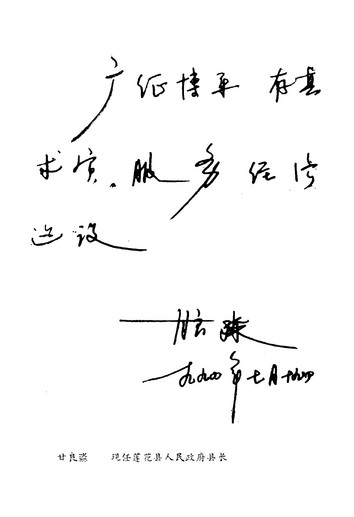 广征博采 存真
求实。服务经济
建设
一九九〇年七月
甘良淼 现任莲花县人民政府县长